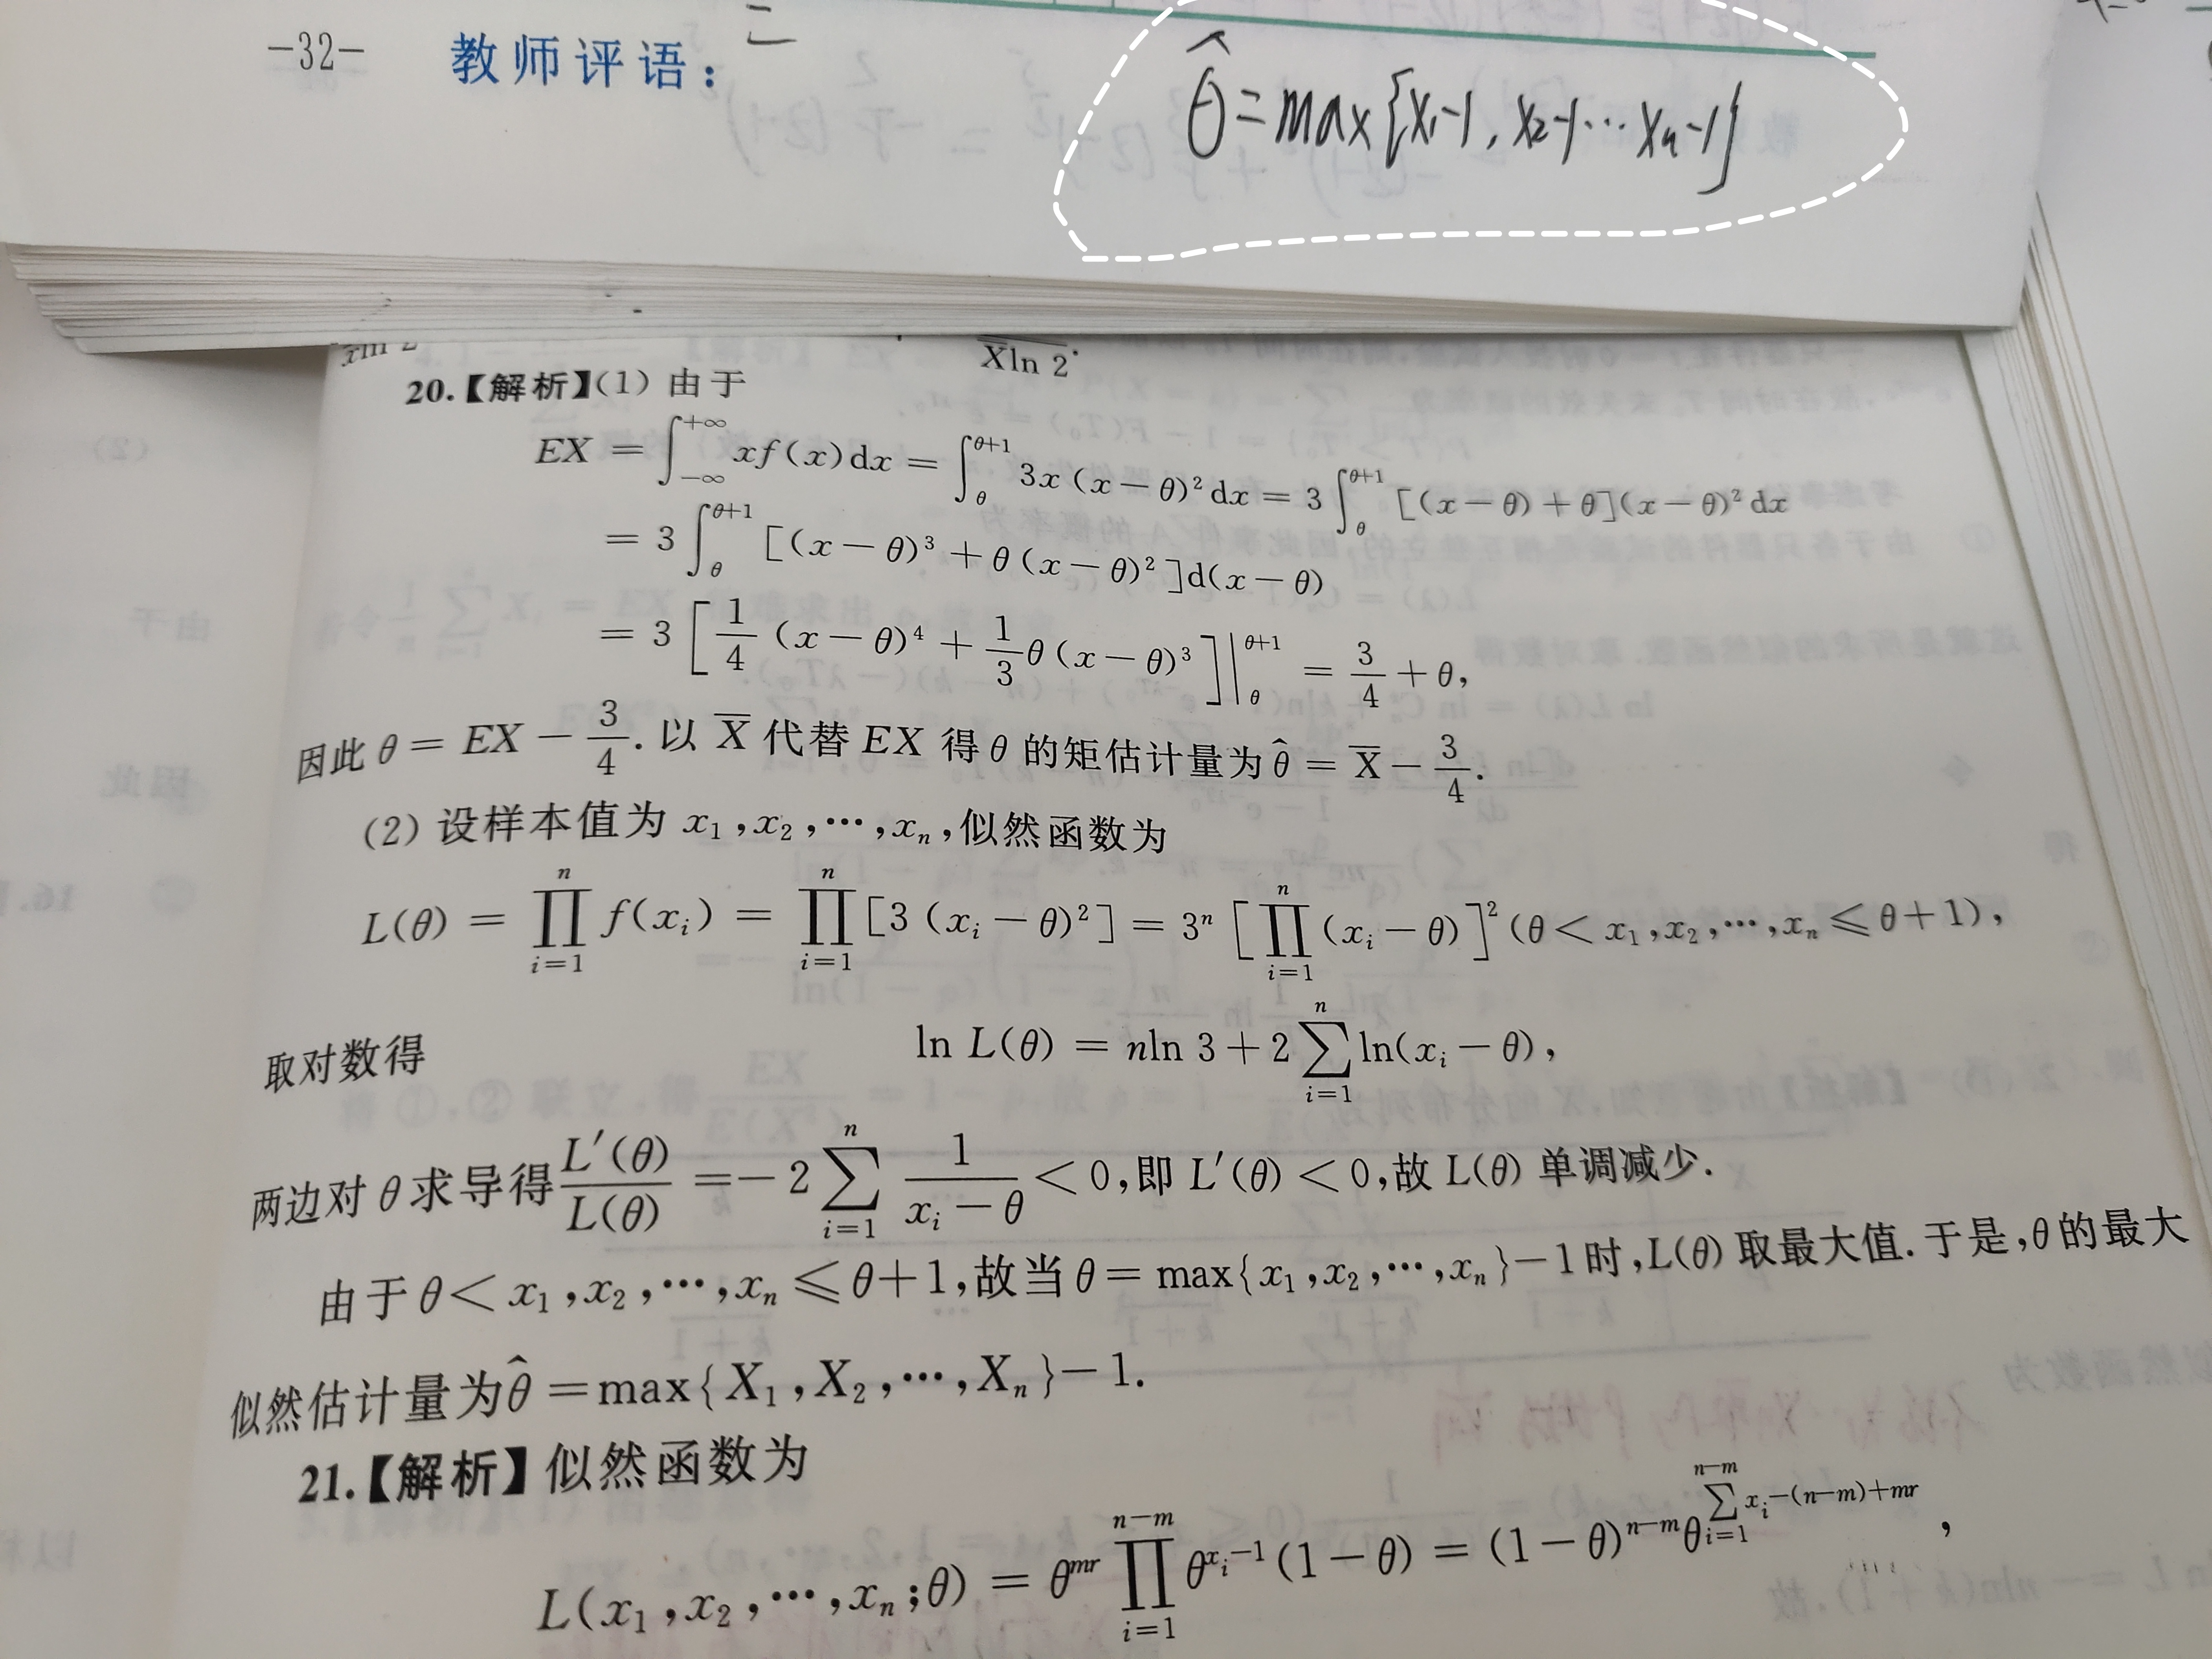 -32- 教师评语：
θ̂ = max{x₁-1, x₂-1 ⋯ xₙ-1}
X̄ln 2.
20.【解析】(1) 由于
EX = ∫_{-∞}^{+∞} xf(x)dx = ∫_θ^{θ+1} 3x(x-θ)²dx = 3∫_θ^{θ+1} [(x-θ)+θ](x-θ)²dx
= 3∫_θ^{θ+1} [(x-θ)³+θ(x-θ)²]d(x-θ)
= 3[1/4 (x-θ)⁴ + 1/3 θ(x-θ)³]|_θ^{θ+1} = 3/4 + θ,
因此 θ = EX - 3/4. 以 X̄ 代替 EX 得 θ 的矩估计量为 θ̂ = X̄ - 3/4.
(2) 设样本值为 x₁,x₂,⋯,xₙ,似然函数为
L(θ) = ∏_{i=1}^{n} f(xᵢ) = ∏_{i=1}^{n} [3(xᵢ-θ)²] = 3ⁿ [∏_{i=1}^{n} (xᵢ-θ)]² (θ < x₁,x₂,⋯,xₙ ≤ θ+1),
取对数得 ln L(θ) = nln 3 + 2∑_{i=1}^{n} ln(xᵢ-θ),
两边对 θ 求导得 L′(θ)/L(θ) = -2∑_{i=1}^{n} 1/(xᵢ-θ) < 0,即 L′(θ) < 0,故 L(θ) 单调减少.
由于 θ < x₁,x₂,⋯,xₙ ≤ θ+1,故当 θ = max{x₁,x₂,⋯,xₙ}-1 时,L(θ) 取最大值.于是,θ 的最大
似然估计量为 θ̂ = max{X₁,X₂,⋯,Xₙ}-1.
21.【解析】似然函数为
L(x₁,x₂,⋯,xₙ;θ) = θ^{mr} ∏_{i=1}^{n-m} θ^{xᵢ-1}(1-θ) = (1-θ)^{n-m} θ^{∑_{i=1}^{n-m} xᵢ-(n-m)+mr},